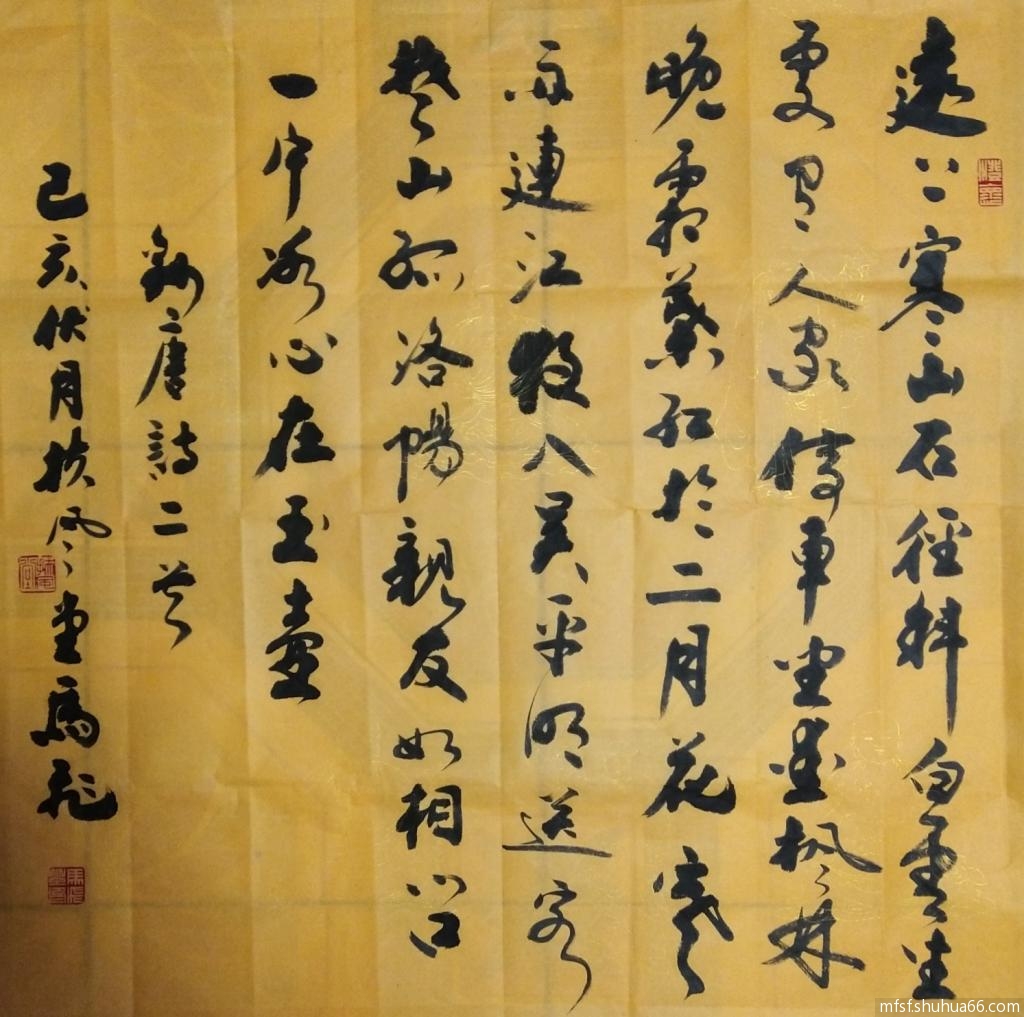 遠上寒山石徑斜白雲生
處有人家停車坐愛楓林
晚霜葉紅於二月花寒
雨連江夜入吳平明送客
楚山孤洛陽親友如相問
一片冰心在玉壺
錄唐詩二首
己亥伏月扶風堂馬
mfsf.shuhua66.com